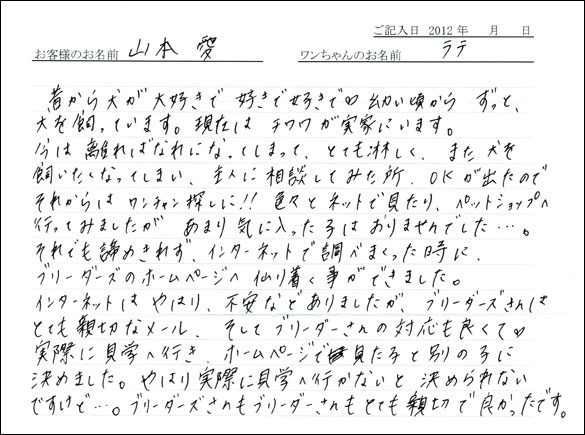 ご記入日 2012 年　月　日
お客様のお名前 山本 愛　ワンちゃんのお名前 ラテ
昔から犬が大好きで 好きで好きで♡ 幼い頃から ずっと、
犬を飼っています。現在は チワワが実家にいます。
今は 離ればなれになってしまって、とても淋しく、また犬を
飼いたくなってしまい、主人に相談してみた所、OKが出たので
それからは ワンチャン探しに!! 色々とネットで見たり、ペットショップへ
行ってみましたが あまり気に入った子はおりませんでした…。
それでも諦めきれず、インターネットで調べまくった時に、
ブリーダーズのホームページへ 仙り着く事ができました。
インターネットは やはり、不安などありましたが、ブリーダーズさんは
とても親切なメール、そしてブリーダーさんの対応も良くて♡
実際に見学へ行き、ホームページで見た子と別の子に
決めました。やはり実際に見学へ行かないと 決められない
ですけど…。ブリーダーズさんもブリーダーさんもとても親切で良かったです。